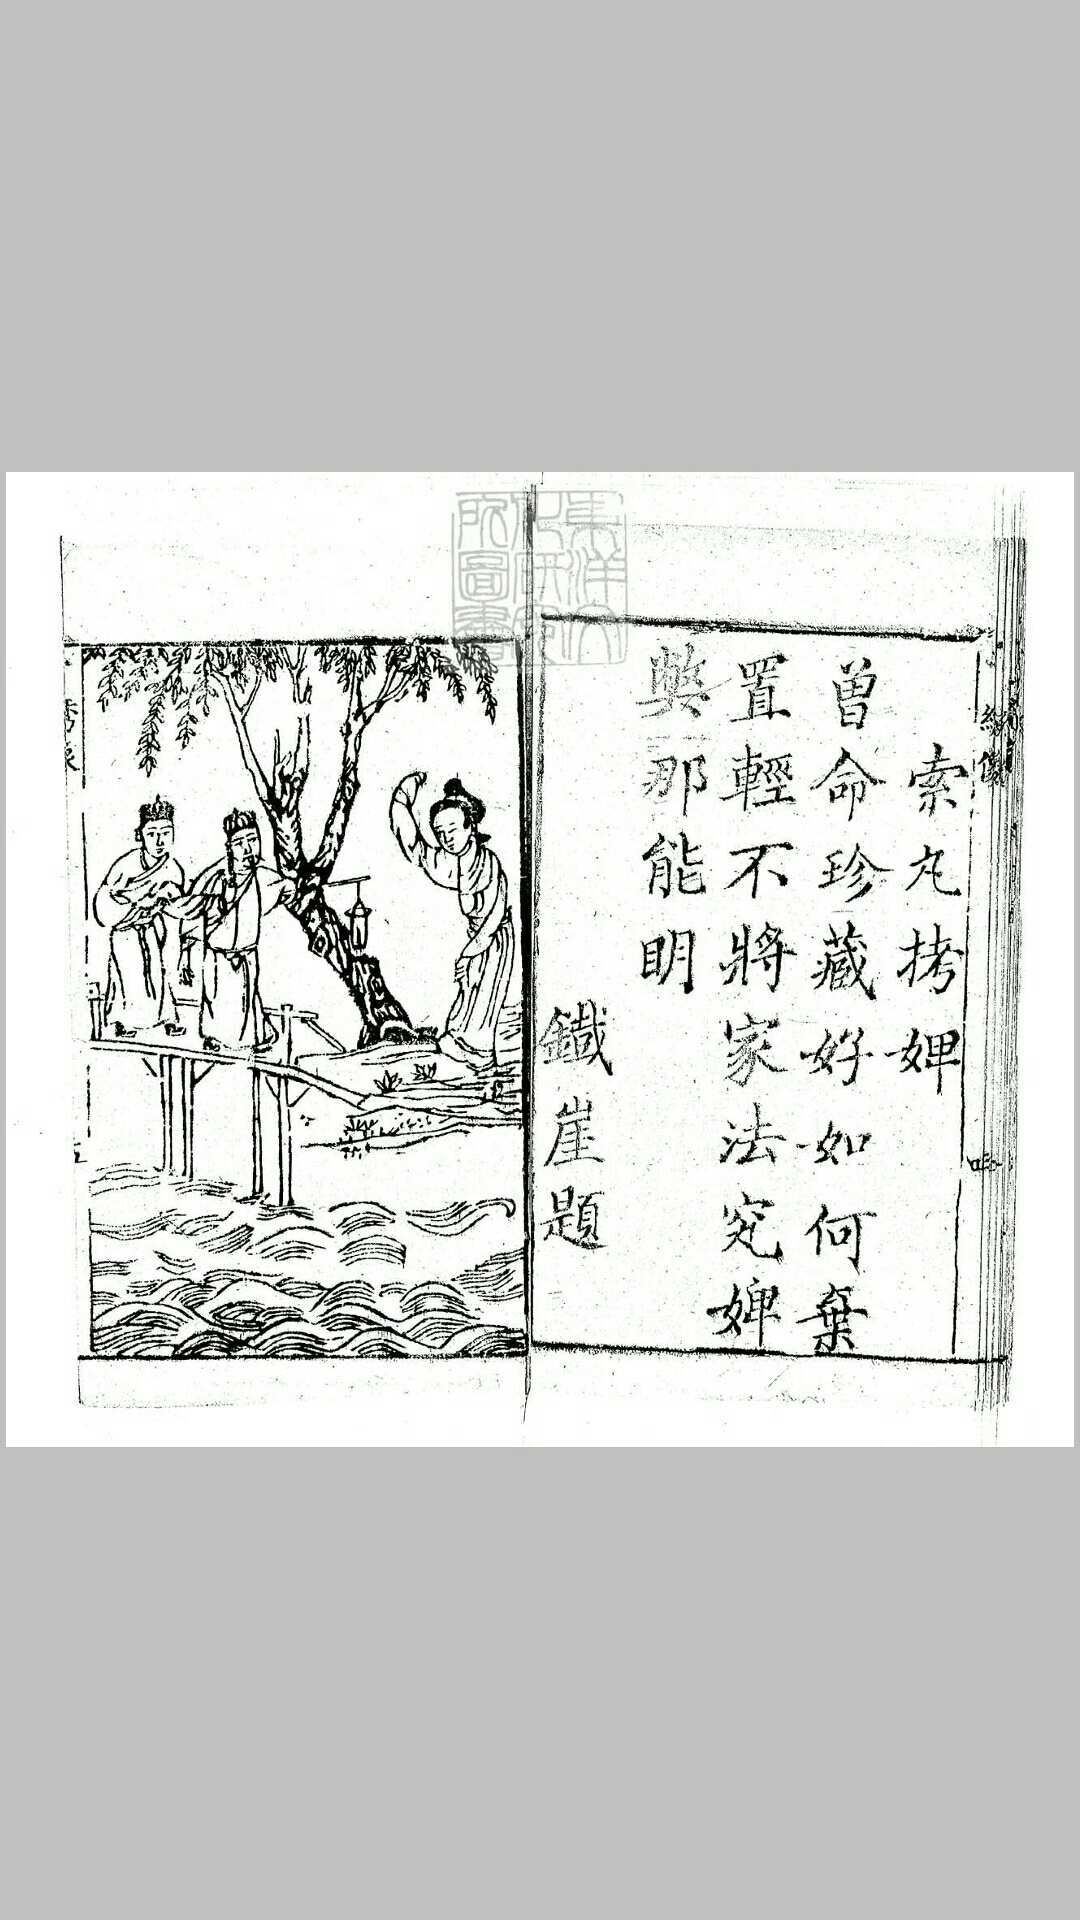 繡像
索丸拷婢
曽命珍藏好如何棄
置輕不將家法究婢
獘那能明
鐵崖題
東洋文
化研究
所圖書